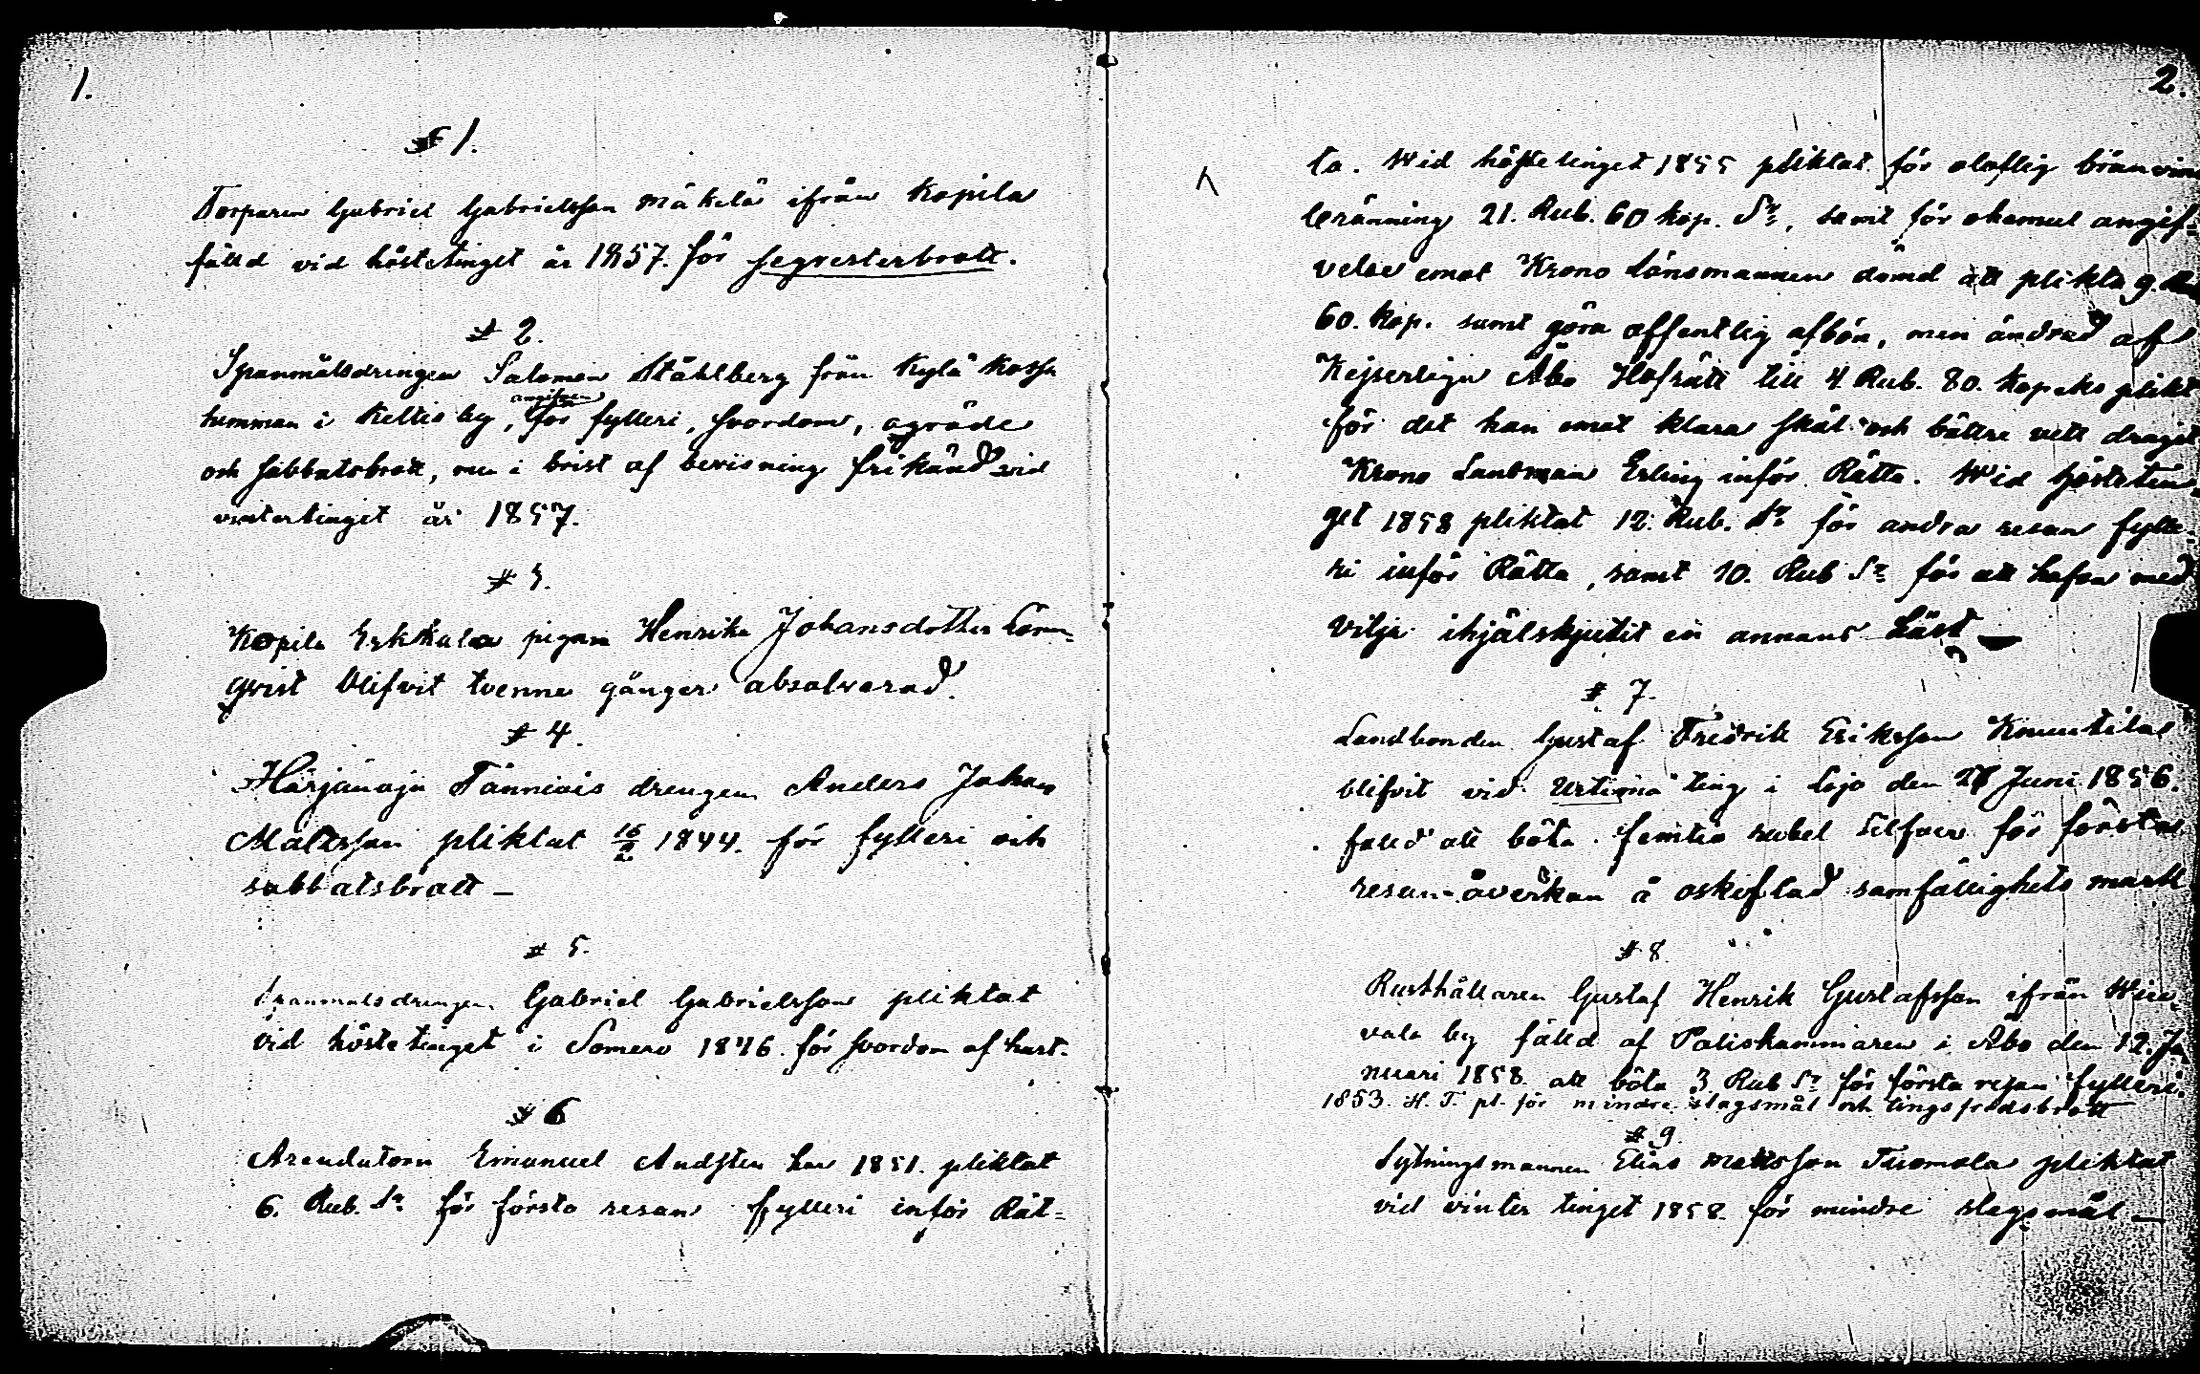 1.
# 1.
Torparen Gabriel Gabrielsson Mäkelä ifrån Kopila
fälld vid höstetinget år 1857. för seqvesterbrott.
# 2.
Spanmålsdrengen Salomon Ståhlberg från Kylä Kossa
hemman i Keltis by, angifven för fylleri, svordom, oqväde
och sabbatsbrott, men i brist af bevisning frikänd vid
vintertinget år 1857.
# 3.
Kopila Erkkula pigan Henrika Johansdotter Lönn-
qvist blifvit tvenne gånger absolverad.
# 4.
Härjänoja Tanniais drengen Anders Johan
Mattsson pliktat 16/2 1844. för fylleri och
sabbatsbrott –
# 5.
Spanmålsdrengen Gabriel Gabrielsson pliktat
vid höstetinget i Somero 1846. för svordom af hast.
# 6
Arendatorn Emanuel Andsten har 1851. pliktat
6. Rub. Sr för första resan fylleri inför Rät-
2.
ta. Wid höstetinget 1855 pliktat för olaflig bränvins
bränning 21. Rub. 60 kop. Sr, samt för ohemul angif-
velse emot Krono Länsmannen dömd att plikta 9. Rub
60. kop. samt göra offentlig afbön, men ändrad af
Kejserliga Åbo Hofrätt till 4 Rub. 80. Kopeks plikt
för det han emot klara skäl och bättre vett dragit
Krono Länsman Erling inför Rätta. Wid hösttin-
get 1858 pliktat 12. Rub. Sr för andra resan fylle-
ri inför Rätta, samt 10. Rub Sr för att hafva med
vilja ihjälskjutit en annans häst –
# 7.
Landbonden Gustaf Fredrik Eriksson Konntila
blifvit vid Urtima ting i Lojo den 27 Juni 1856.
fälld att böta femtio rubel Silfver för första
resan åverkan å oskiftad samfällighets mark
# 8.
Rusthållaren Gustaf Henrik Gustafsson ifrån Wii-
vala by fälld af Poliskammaren i Åbo den 12. Ja
nuari 1858. att böta 3 Rub Sr för första resan fylleri.
1853. H. T. pl. för mindre slagsmål och tingsfridsbrott
# 9.
Sytningsmannen Elias Mattsson Tuomola pliktat
vid vinter tinget 1858. för mindre slagsmål –